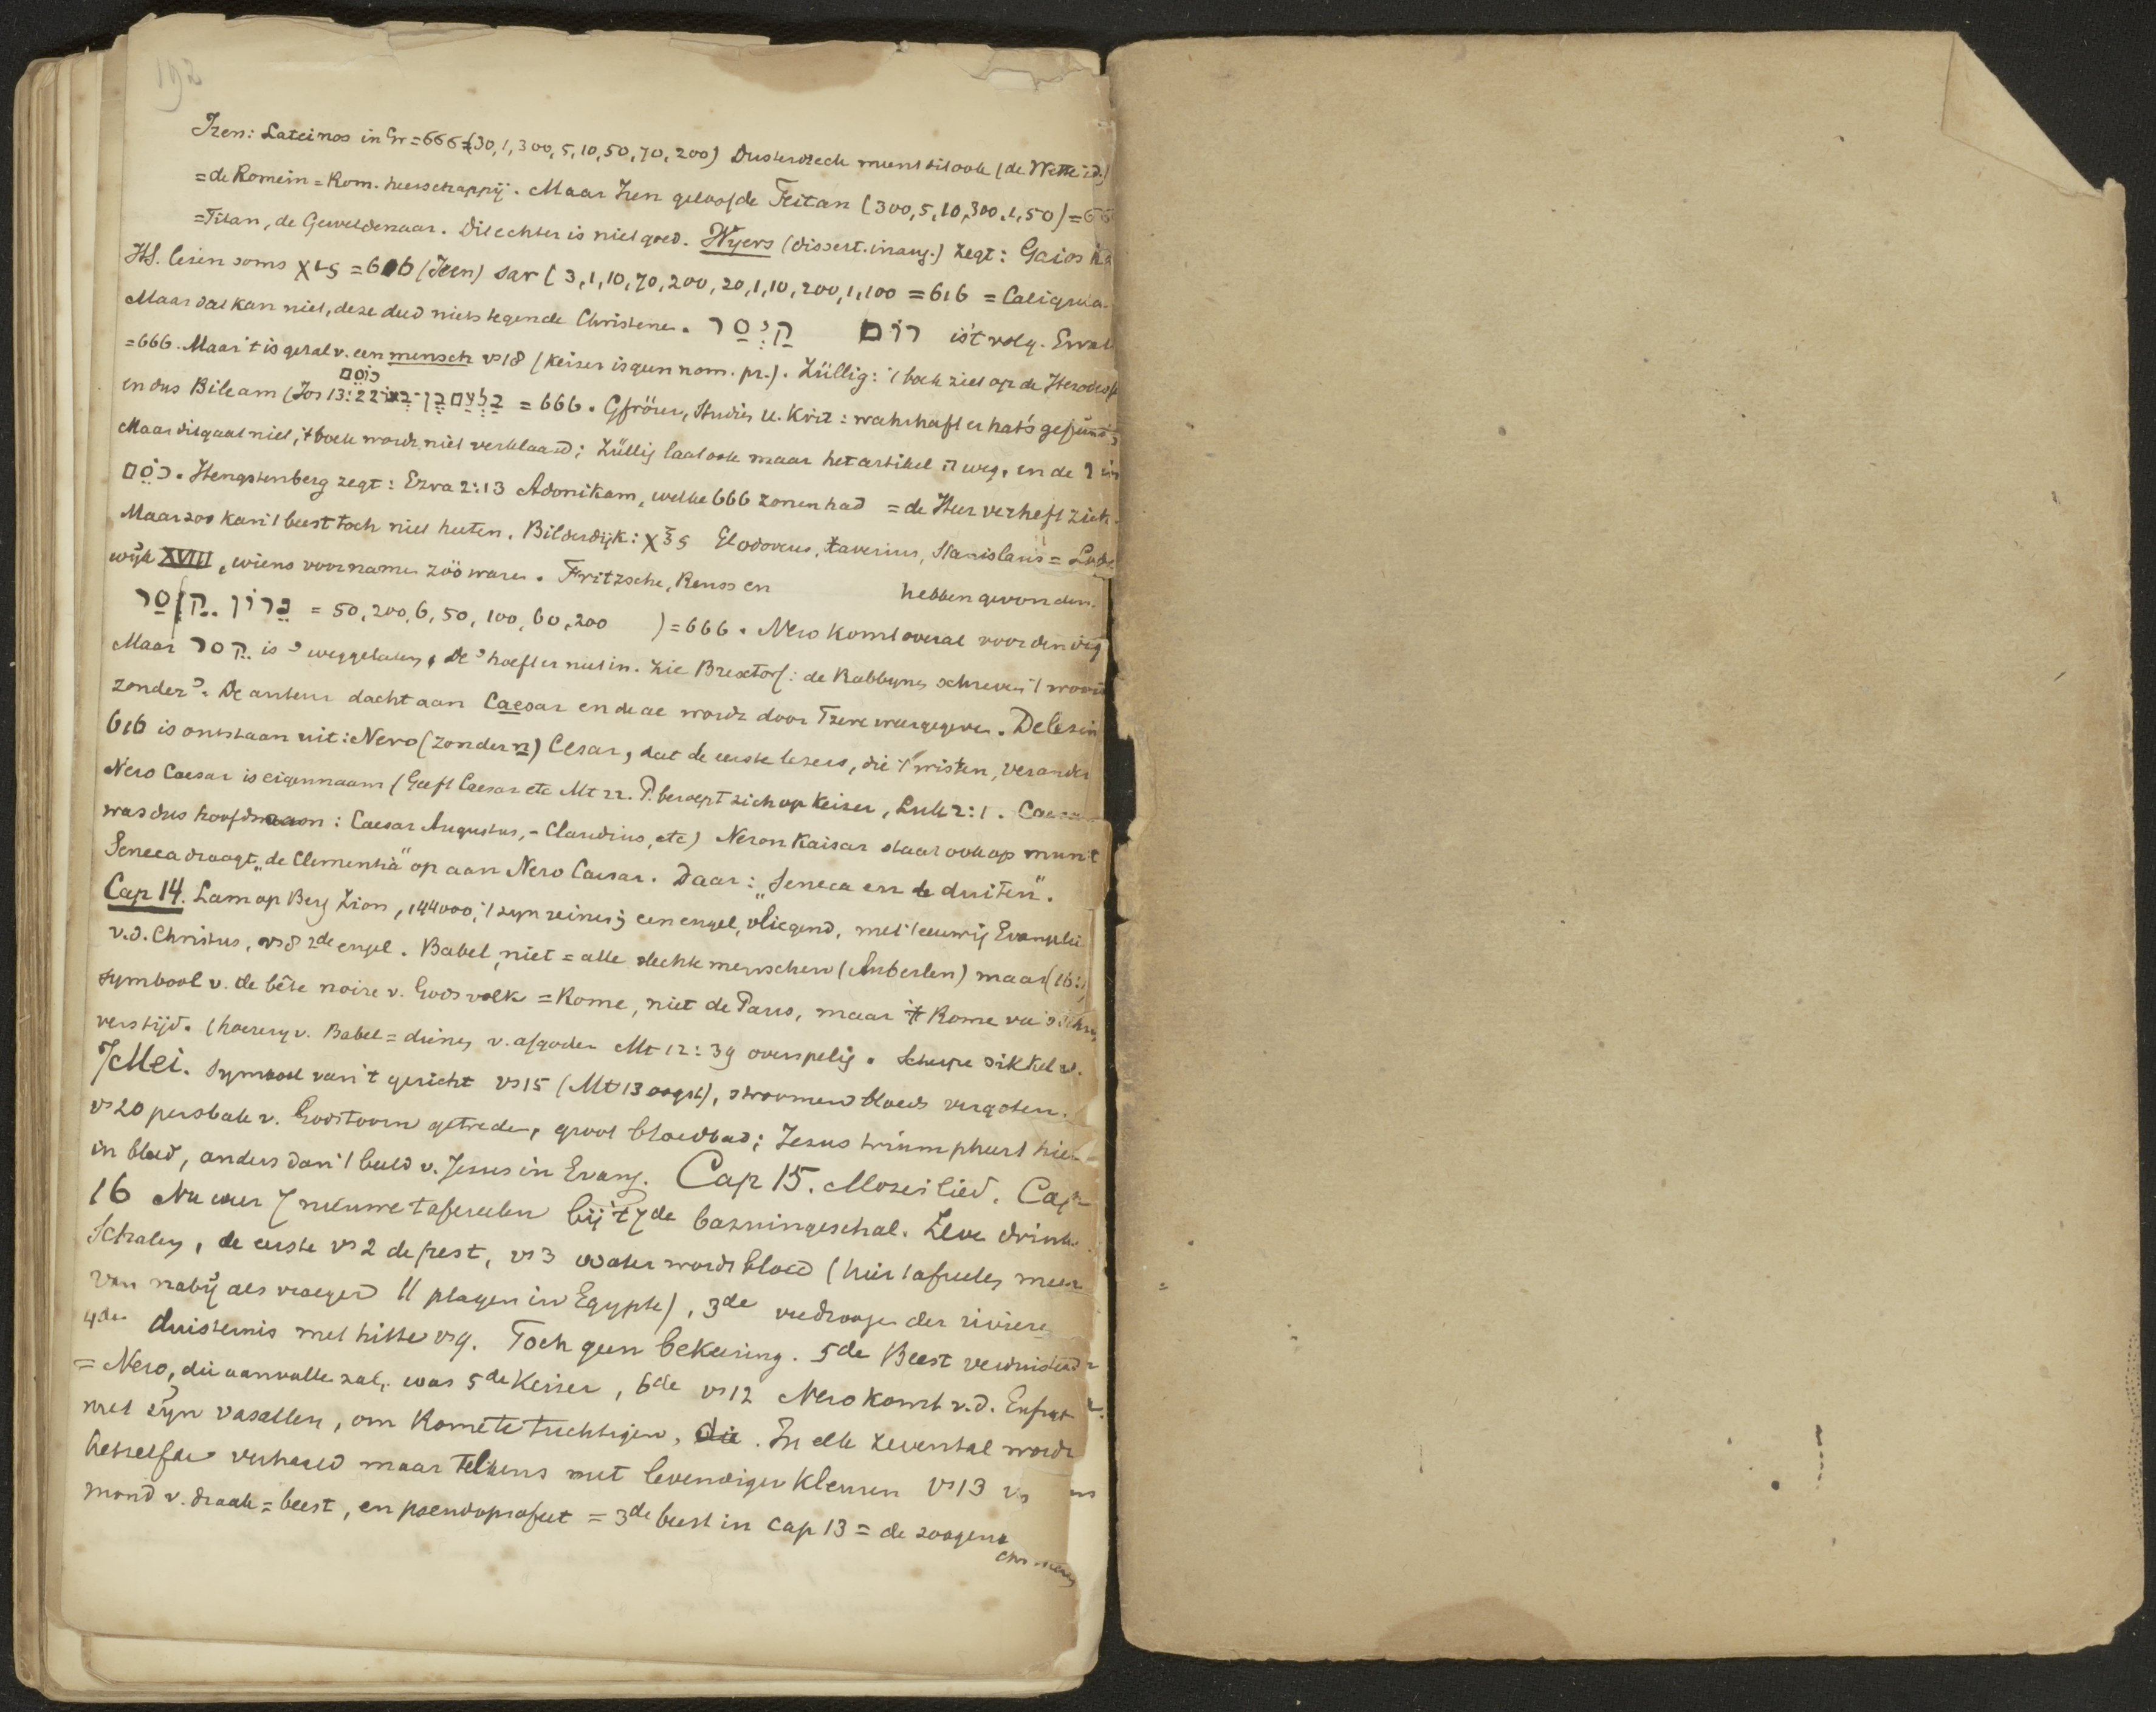 192
Iren: Lateinos in Gr = 666 = (30, 1, 300, 5, 10, 50, 70, 200) Dusterdieck meent dit ook (de Wette id.)
= de Romein = Rom. heerschappij. Maar Iren geloofde Teitan (300, 5, 10, 300, 1, 50) = 66
= Titan, de Geweldenaar. Dit echter is niet goed. Wyers (dissert. inaug.) zegt: Gaios
HS. lesen soms χις = 616 (Iren) sar (3, 1, 10, 70, 200, 20, 1, 10, 200, 1, 100 = 616 = Caligula.
Maar dat kan niet, deze deed niets tegen de Christenen. קיסר רום is 't volg. Ewald
= 666. Maar 't is getal v. een mensch vs 18 (keiser is geen nom. pr.). Züllig: 't boek ziet op de Herodes
קוסם
en dus Bileam (Jos 13:22 בלעם בן־בער = 666. Gfrörer, Studien u. Krit: wahrhaft er hat's gefunden
Maar dit gaat niet, 't boek wordt niet verklaard; Züllig laat ook maar het artikel ה weg, en de ו in
קוסם. Hengstenberg zegt: Ezra 2:13 Adonikam, welke 666 zonen had = de Heer verheft zich.
Maar zoo kan 't beest toch niet heeten. Bilderdijk: χξς Clodoveus, Xaverius, Stanislaus = Lode
wijk XVIII, wiens voornamen zóó waren. Fritzsche, Reuss en hebben gevonden.
נרון קסר = 50, 200, 6, 50, 100, 60, 200 ) = 666. Nero komt overal voor den dag
Maar קסר is י weggelaten, De י hoeft er niet in. Zie Buxtorf: de Rabbynen schreven 't woord
zonder י. De auteur dacht aan Caesar en de ae wordt door Tzere weergegeven. De lezin
616 is ontstaan uit: Nero (zonder n) Cesar, dat de eerste lezers, die 't wisten, verander
Nero Caesar is eigennaam (Geeft Caesar etc Mt 22. P. beroept zich op Keiser, Luk 2:1. Caesar
was dus hoofdnaam: Caesar Augustus, – Claudius, etc) Neron Kaisar staat ook op munt
Seneca draagt „de Clementia" op aan Nero Caesar. Daar: „Seneca en de duiten".
Cap 14. Lam op Berg Zion, 144000, 't zyn reinen; een engel, vliegend, met 't eeuwig Evangelie
v.d. Christus, vs 8 2de engel. Babel, niet = alle slechte menschen (Auberlen) maar (16:
symbool v. de bête noire v. Gods volk = Rome, niet de Paus, maar 't Rome van
vers tijd. (hoerery v. Babel = dienen v. afgoden Mt 12:39 overspelig. Scherpe sikkel v.
7 Mei. Symbool van 't gericht vs 15 (Mt 13 oogst), stroomen bloeds vergoten.
vs 20 persbak v. Gods toorn getreden, groot bloedbad; Jezus triumpheert hier
in bloed, anders dan 't beeld v. Jezus in Evang. Cap 15. Mozes' lied. Cap
16 Nu weer 7 nieuwe tafereelen bij 't 7de bazuingeschal. Zeve drink
Schalen, de eerste vs 2 de pest, vs 3 water wordt bloed (hier tafreelen meer
van nabij als vroeger || plagen in Egypte), 3de verdroogen der rivieren
4de duisternis met hitte vs 9. Toch geen bekeering. 5de Beest verduisterd
= Nero, die aanvallen zal, was 5de Keiser, 6de vs 12 Nero komt v.d. Eufraat
met zyn vasallen, om Rome te tuchtigen, die. In elk zevental wordt
hetzelfde verhaald maar telkens met levendiger kleuren vs 13
mond v. draak = beest, en pseudoprofeet = 3de beest in cap 13 = de zoogen